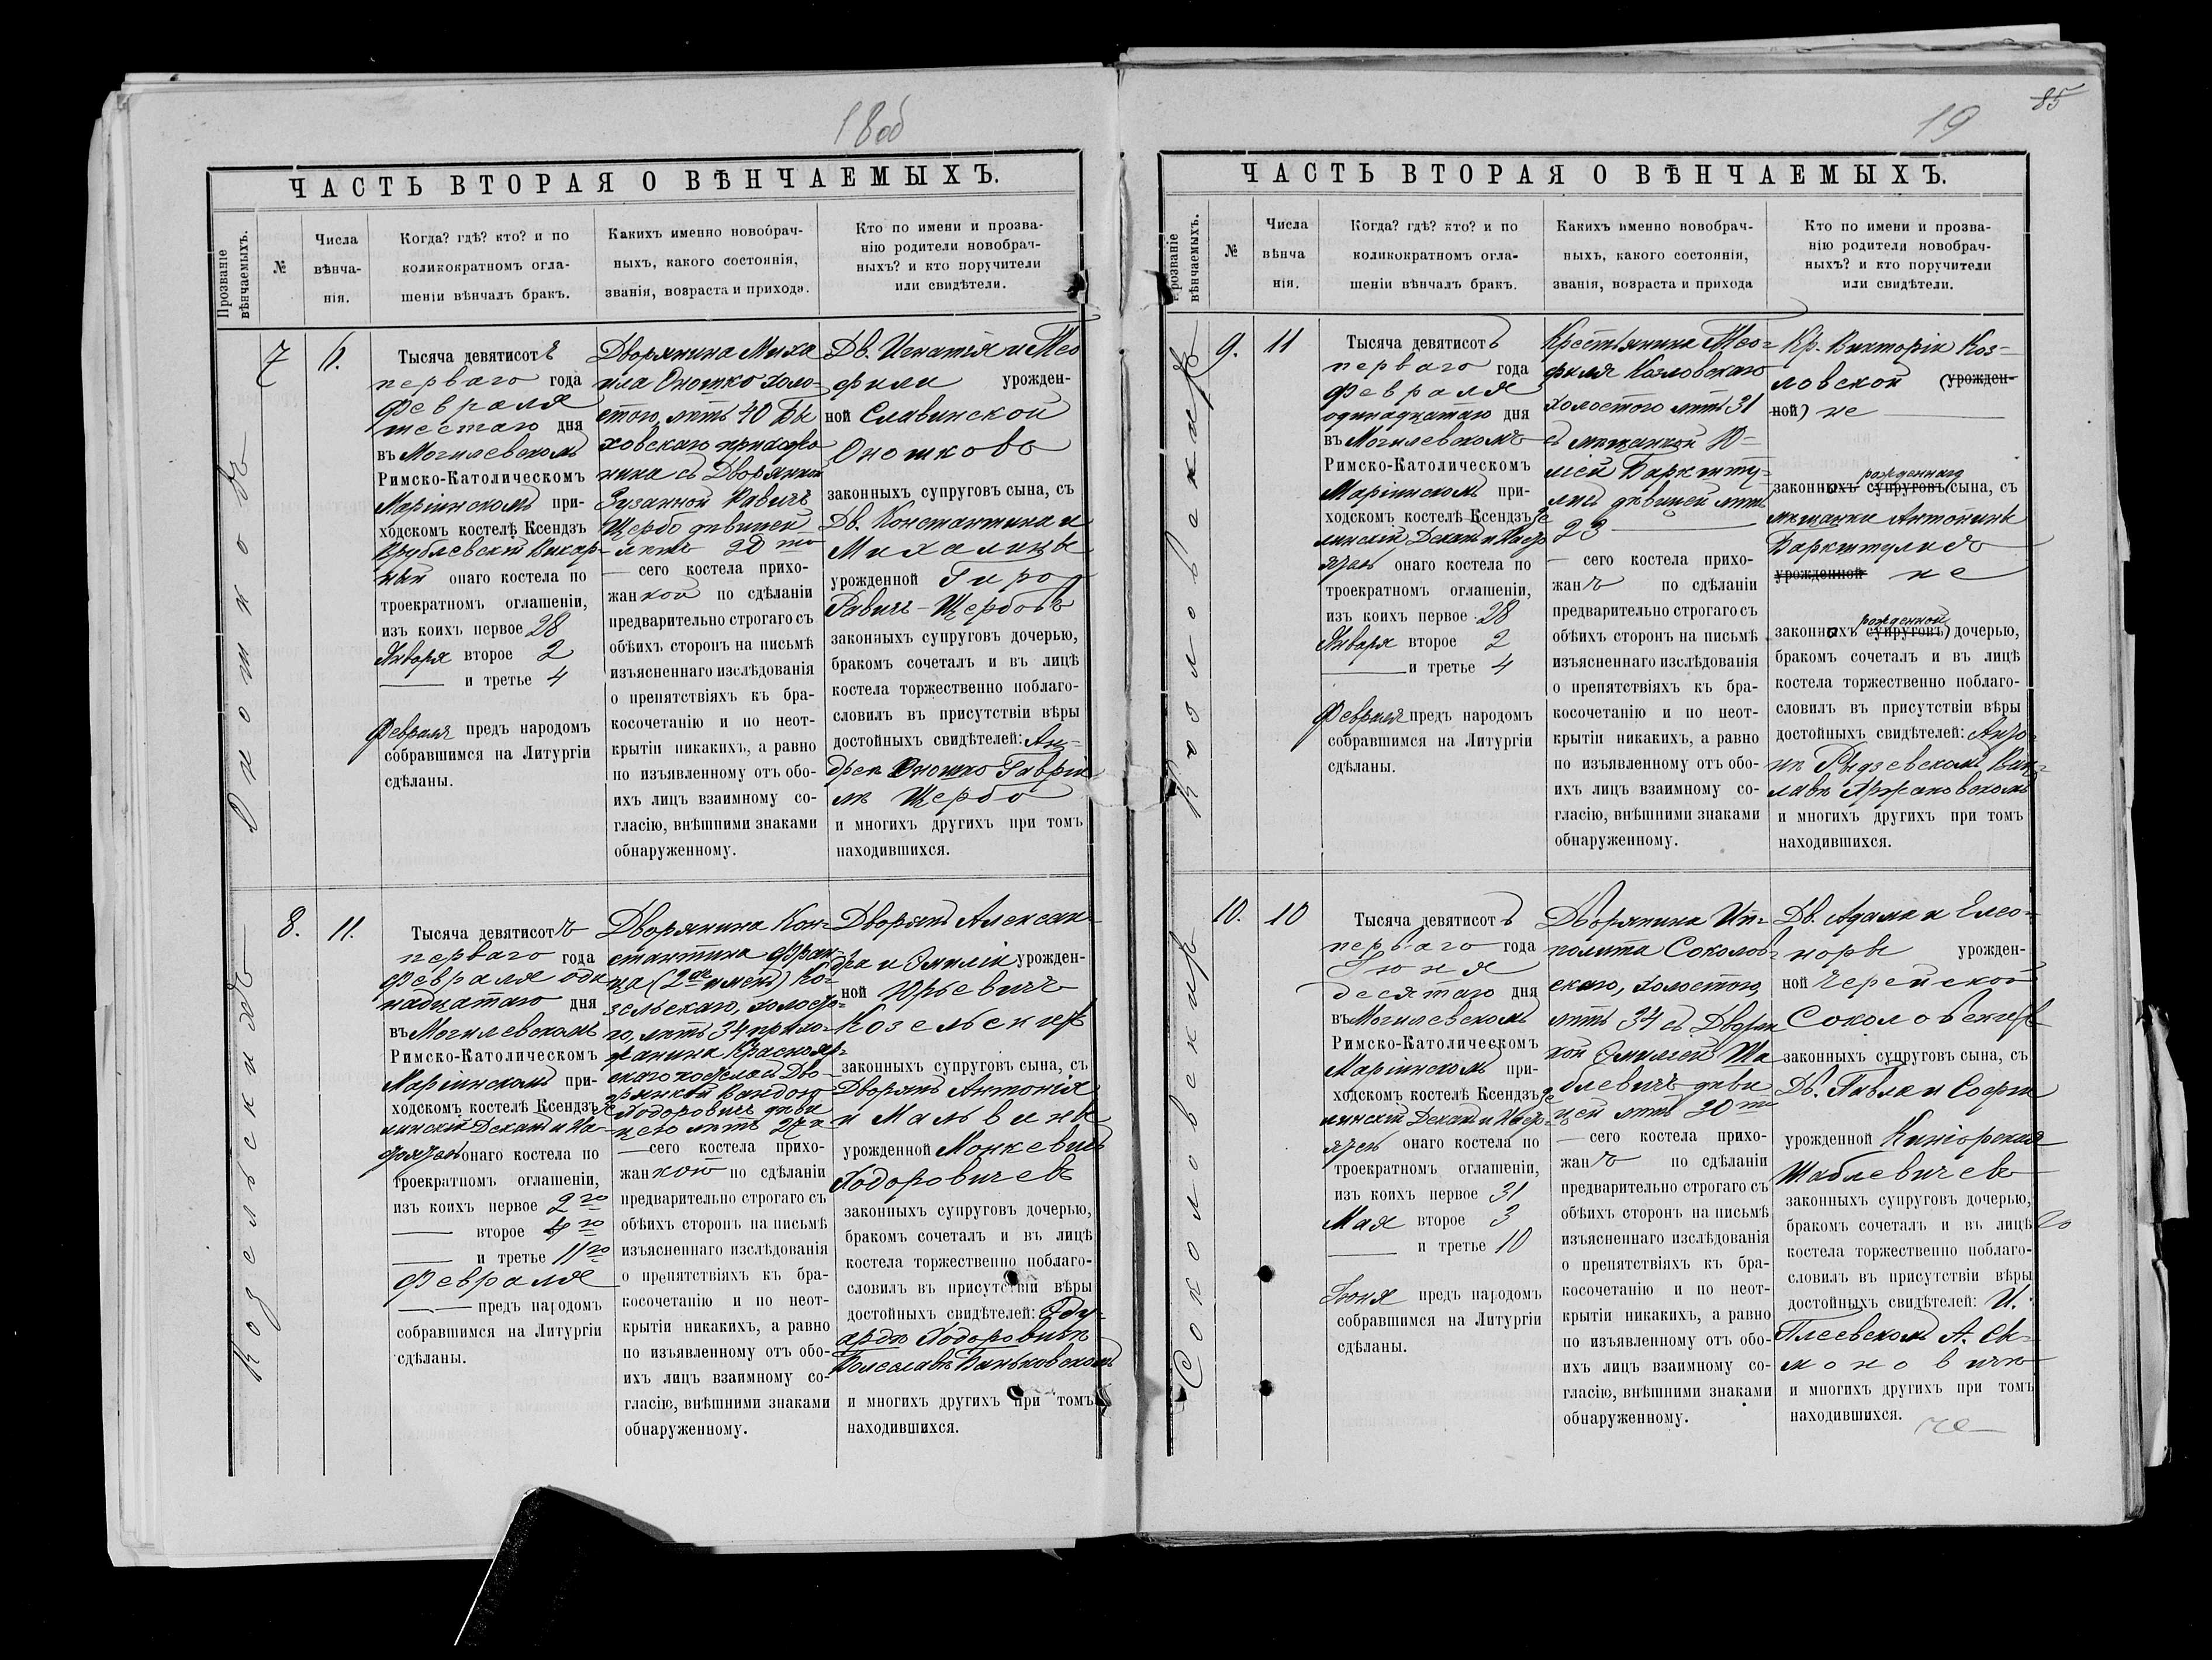 18об
ЧАСТЬ ВТОРАЯ О ВѢНЧАЕМЫХЪ.
Прозваніе вѣнчаемыхъ.
№
Числа
вѣнча-
нія.
Когда? гдѣ? кто? и по
коликократномъ огла-
шеніи вѣнчалъ бракъ.
Какихъ именно новобрач-
ныхъ, какого состоянія,
званія, возраста и прихода.
Кто по имени и прозва-
нію родители новобрач-
ныхъ? и кто поручители
или свидѣтели.
Оношковъ
7
6.
Тысяча девятисотъ
перваго года
Февраля
шестаго дня
въ Могилевскомъ
Римско-Католическомъ
Маріинскомъ при-
ходскомъ костелѣ Ксендзъ
Врублевскій Викар-
ный онаго костела по
троекратномъ оглашеніи,
изъ коихъ первое 28
Января второе 2
и третье 4
Февраля предъ народомъ
собравшимся на Литургіи
сдѣланы.
Дворянина Миха
ила Оношко холо-
стого, лѣтъ 40 Бы
ховскаго прихожа
нина съ Дворянкой
Зузанной Равичъ
Щербо дѣвицей
лѣтъ 20 ти
сего костела прихо-
жанкой по сдѣланіи
предварительно строгаго съ
обѣихъ сторонъ на письмѣ
изъясненнаго изслѣдованія
о препятствіяхъ къ бра-
косочетанію и по неот-
крытіи никакихъ, а равно
по изъявленному отъ обо-
ихъ лицъ взаимному со-
гласію, внѣшними знаками
обнаруженному.
Дв. Игнатія и Тео
фили урожден-
ной Славинской
Оношковъ
законныхъ супруговъ сына, съ
Дв. Константина и
Михалины
урожденной Гиро
Равичъ-Щербовъ
законныхъ супруговъ дочерью,
бракомъ сочеталъ и въ лицѣ
костела торжественно поблаго-
словилъ въ присутствіи вѣры
достойныхъ свидѣтелей: Ан-
дреѣ Оношко Гавріи
лѣ Щербо
и многихъ другихъ при томъ
находившихся.
Козельскихъ
8.
11.
Тысяча девятисотъ
перваго года
Февраля оди
надцатаго дня
въ Могилевскомъ
Римско-Католическомъ
Маріинскомъ при-
ходскомъ костелѣ Ксендзъ Зе
линскій Деканъ и На-
стоятель онаго костела по
троекратномъ оглашеніи,
изъ коихъ первое 2го
второе 4го
и третье 11го
Февраля
предъ народомъ
собравшимся на Литургіи
сдѣланы.
Дворянина Кон-
стантина Фран
ца (2хъ именъ) Ко-
зельскаго, холосто-
го, лѣтъ 34 прихо-
жанина Краснояр-
скаго костела съ Дво-
рянкой Вандою
Ходоровичъ дѣви
цею лѣтъ 27 и
сего костела прихо-
жанкою по сдѣланіи
предварительно строгаго съ
обѣихъ сторонъ на письмѣ
изъясненнаго изслѣдованія
о препятствіяхъ къ бра-
косочетанію и по неот-
крытіи никакихъ, а равно
по изъявленному отъ обо-
ихъ лицъ взаимному со-
гласію, внѣшними знаками
обнаруженному.
Дворянъ Алексан-
дра и Эмиліи урожден-
ной Юрьевичъ
Козельскихъ
законныхъ супруговъ сына, съ
Дворянъ Антонія
и Мальвины
урожденной Монкевичъ
Ходоровичевъ
законныхъ супруговъ дочерью,
бракомъ сочеталъ и въ лицѣ
костела торжественно поблаго-
словилъ въ присутствіи вѣры
достойныхъ свидѣтелей: Эду-
ардѣ Ходоровичѣ
БолеславѣВаньковскомъ
и многихъ другихъ при томъ
находившихся.
85
19
ЧАСТЬ ВТОРАЯ О ВѢНЧАЕМЫХЪ.
Прозваніе вѣнчаемыхъ.
№
Числа
вѣнча
нія.
Когда? гдѣ? кто? и по
коликократномъ огла-
шеніи вѣнчалъ бракъ.
Какихъ именно новобрач-
ныхъ, какого состоянія,
званія, возраста и прихода
Кто по имени и прозва-
нію родители новобрач-
ныхъ? и кто поручители
или свидѣтели.
Козловскихъ
9.
11
Тысяча девятисотъ
перваго года
Февраля
одинадцатаго дня
въ Могилевскомъ
Римско-Католическомъ
Маріинскомъ при-
ходскомъ костелѣ Ксендзъ Зе
линскій Деканъ и Насто
ятель онаго костела по
троекратномъ оглашеніи,
изъ коихъ первое 28
Января второе 2
и третье 4
Февраля предъ народомъ
собравшимся на Литургіи
сдѣланы.
Крестьянина Тео-
филя Козловскаго
холостого лѣтъ 31
съ мѣщанкой Ю-
ліей Баркшту-
лисъ дѣвицей лѣтъ
23
сего костела прихо-
жанъ по сдѣланіи
предварительно строгаго съ
обѣихъ сторонъ на письмѣ
изъясненнаго изслѣдованія
о препятствіяхъ къ бра-
косочетанію и по неот-
крытіи никакихъ, а равно
по изъявленному отъ обо-
ихъ лицъ взаимному со-
гласію, внѣшними знаками
обнаруженному.
Кр. Викторіи Коз-
ловской (урожден-
ной) не
рожденнаго
законныхъ супруговъ сына, съ
мѣщанки Антонины
Баркштулисъ
урожденной не
рожденной
законныхъ супруговъ) дочерью,
бракомъ сочеталъ и въ лицѣ
костела торжественно поблаго-
словилъ въ присутствіи вѣры
достойныхъ свидѣтелей:
и многихъ другихъ при томъ
находившихся.
Соколовскихъ
10.
10
Тысяча девятисотъ
перваго года
Іюня
десятаго дня
въ Могилевскомъ
Римско-Католическомъ
Маріинскомъ при-
ходскомъ костелѣ Ксендзъ Зе
линскій Деканъ и Насто-
ятель онаго костела по
троекратномъ оглашеніи,
изъ коихъ первое 31
Мая второе 3
и третье 10
Іюня предъ народомъ
собравшимся на Литургіи
сдѣланы.
Дворянина Ип-
полита Соколов-
скаго, холостого,
лѣтъ 34 съ Дворян
кой Эмиліей Ша
блевичъ дѣви
цей лѣтъ 30 ти
сего костела прихо-
жанъ по сдѣланіи
предварительно строгаго съ
обѣихъ сторонъ на письмѣ
изъясненнаго изслѣдованія
о препятствіяхъ къ бра-
косочетанію и по неот-
крытіи никакихъ, а равно
по изъявленному отъ обо-
ихъ лицъ взаимному со-
гласію, внѣшними знаками
обнаруженному.
Дв. Адама и Елео-
норы урожден-
ной Черейской
Соколовскихъ
законныхъ супруговъ сына, съ
Дв. Павла и Софіи
урожденной
Шаблевичевъ
законныхъ супруговъ дочерью,
бракомъ сочеталъ и въ лицѣ
костела торжественно поблаго-
словилъ въ присутствіи вѣры
достойныхъ свидѣтелей: И.
и многихъ другихъ при томъ
находившихся.